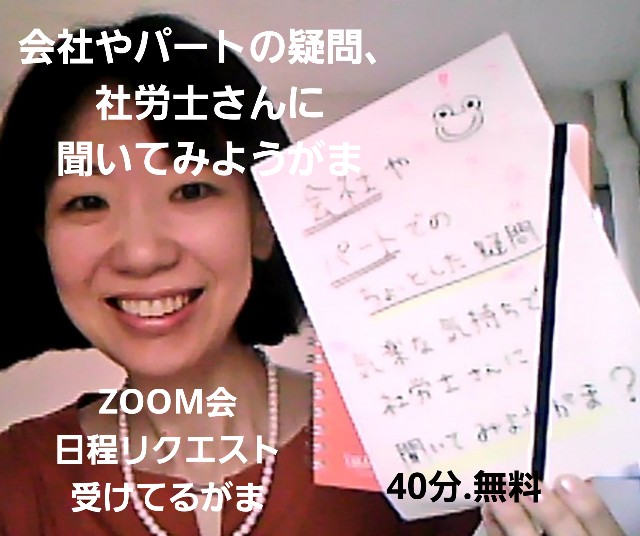 会社やパートの疑問、
社労士さんに
聞いてみようがま
会社や
パートでの
ちょっとした疑問
気楽な気持ちで
社労士さんに
聞いてみようがま？
ZOOM会
日程リクエスト
受けてるがま
40分.無料